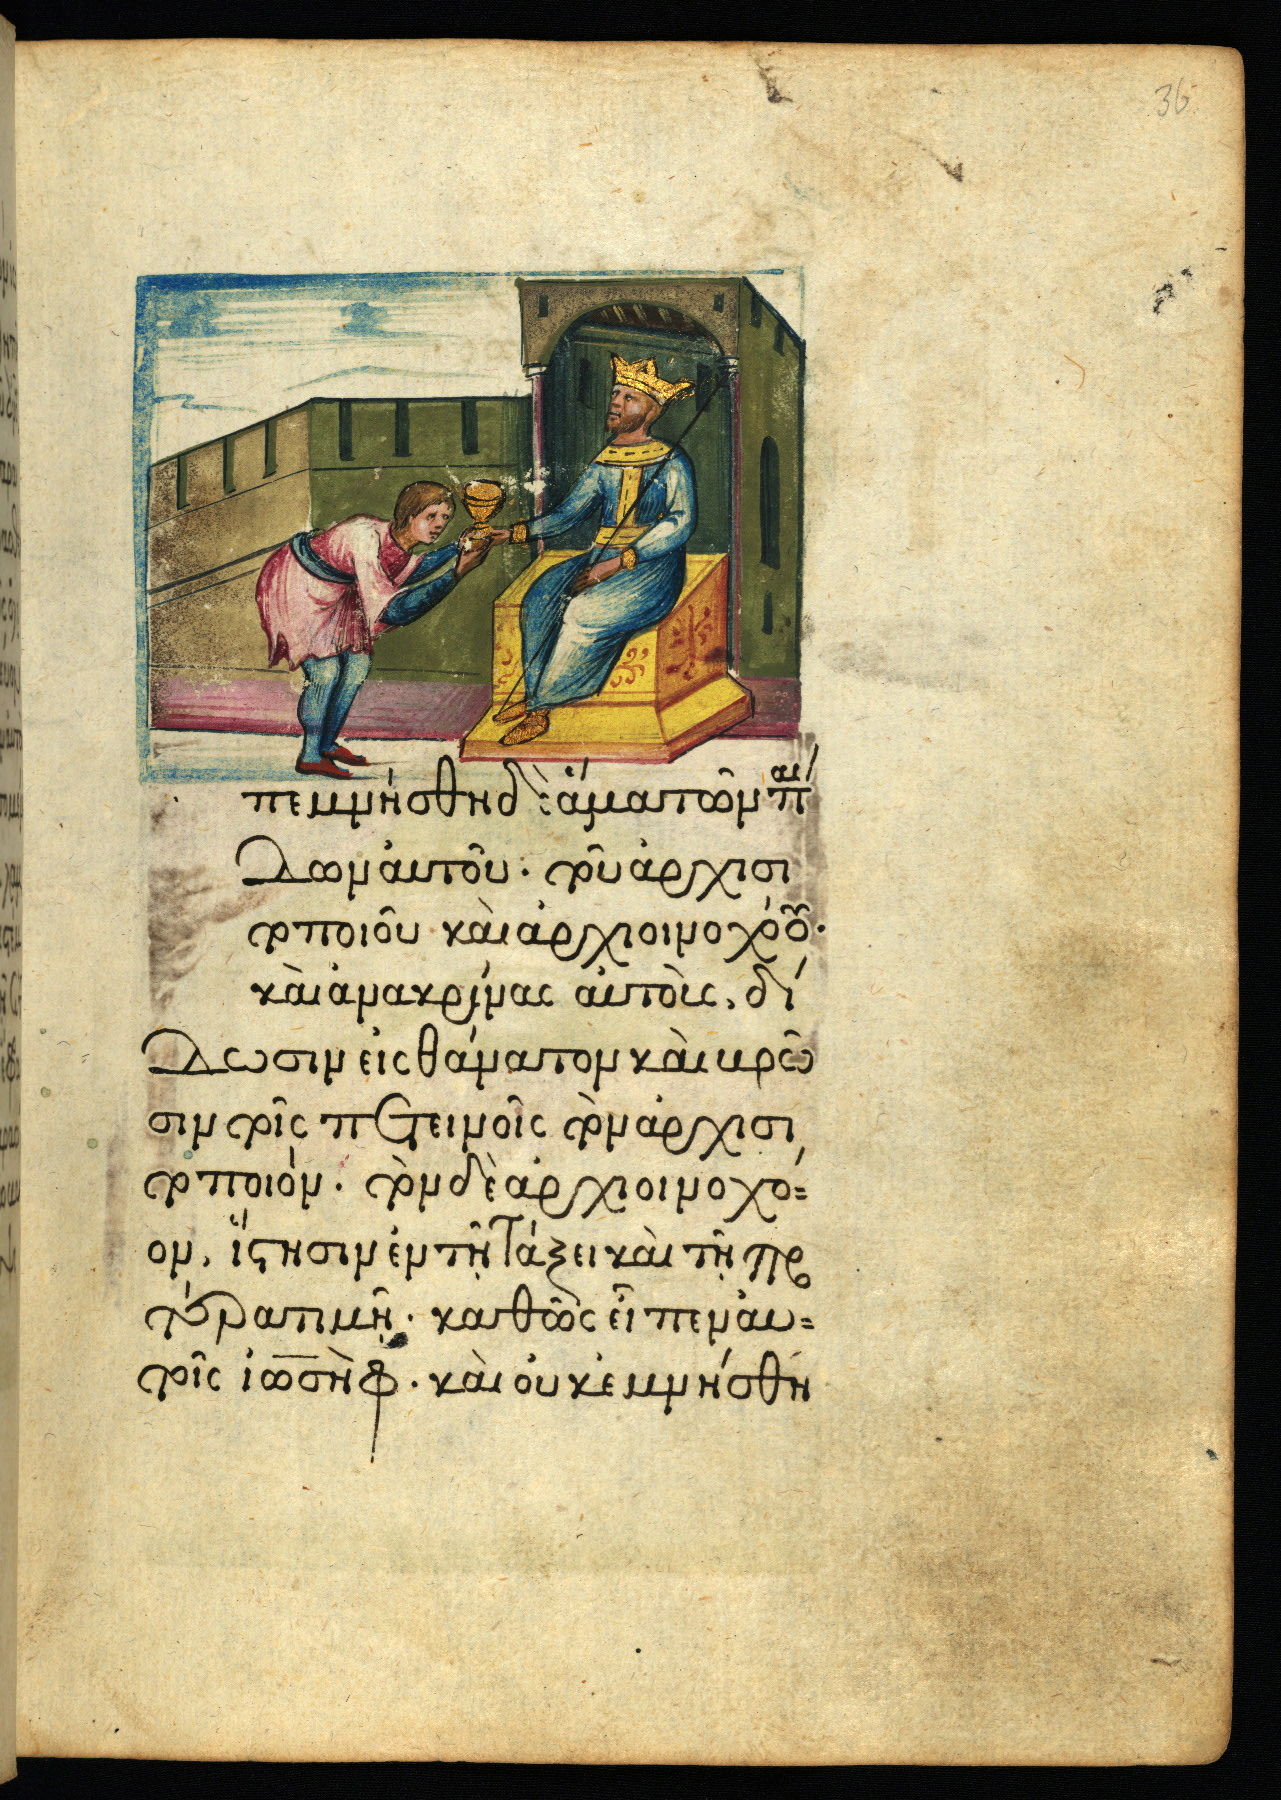 πεμνήσθη δὲ ἅμα τῶν παί
δων αὐτοῦ· τοῦ ἀρχισι
τοποιοῦ καὶ ἀρχιοινοχόου·
καὶ ἀνακρίνας αὐτοὶς, δί
δωσιν εἰς θάνατον καὶ βρῶ
σιν τοῖς πετεινοῖς τὸν ἀρχισι
τοποιὸν· τὸν δὲ ἀρχιοινοχό=
ον, ἵστησιν ἐν τῇ τάξει καὶ τῇ πρ
οτέρα τιμῇ· καθῶς εἶπεν αὐ=
τοῖς ἰωσὴφ· καὶ οὐκ ἐμνήσθη
36